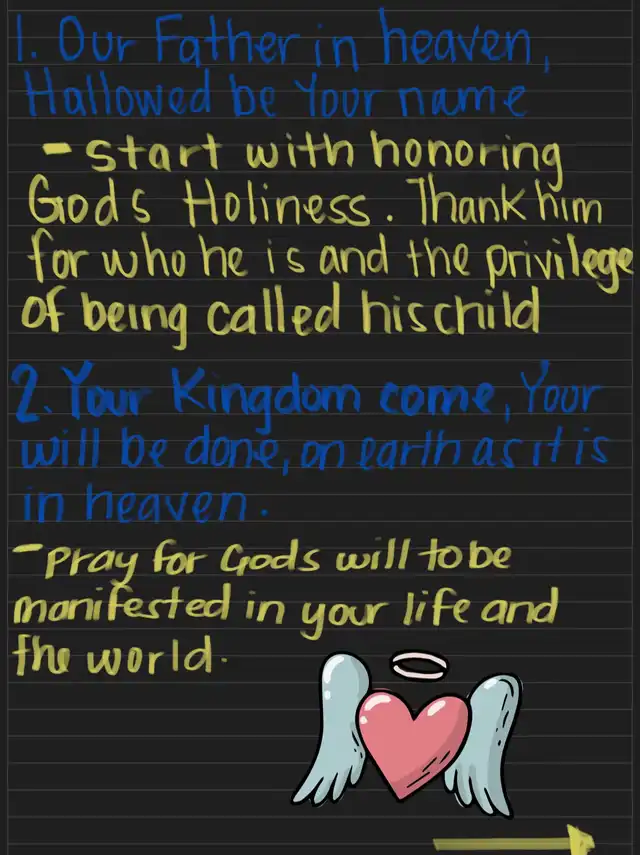 1. Our Father in heaven,
Hallowed be Your name
- start with honoring
Gods Holiness. Thank him
for who he is and the privilege
of being called his child
2. Your Kingdom come, Your
will be done, on earth as it is
in heaven.
- pray for Gods will to be
manifested in your life and
the world.